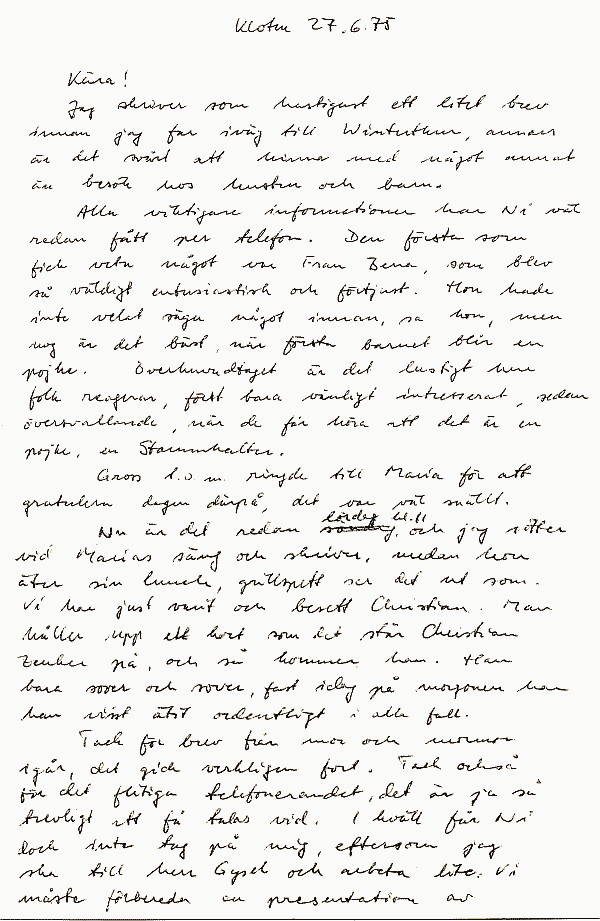 Kloten 27.6.75
Kära!
Jag skriver som hastigast ett litet brev
innan jag far iväg till Winterthur, annars
är det svårt att hinna med något annat
än besök hos hustru och barn.
Alla viktigare informationer har Ni väl
redan fått per telefon. Den första som
fick veta något var Frau Bena, som blev
så väldigt entusiastisk och förtjust. Hon hade
inte velat säga något innan, sa hon, men
nog är det bäst, när första barnet blir en
pojke. Överhuvudtaget är det lustigt hur
folk reagerar, först bara vänligt intresserat, sedan
översvallande, när de får höra att det är en
pojke, en Stammhalter.
Gross t.o.m. ringde till Maria för att
gratulera dagen därpå, det var väl snällt.
Nu är det redan lördag kl. 11 och jag sitter
vid Marias säng och skriver, medan hon
äter sin lunch, grillspett ser det ut som.
Vi har just varit och besett Christian. Man
håller upp ett kort som det står Christian
Zeuber på, och så kommer han. Han
bara sover och sover, fast idag på morgonen har
han visst ätit ordentligt i alla fall.
Tack för brev från mor och mormor
igår, det gick verkligen fort. Tack också
för det flitiga telefonerandet, det är ju så
trevligt att få talas vid. I kväll får Ni
dock inte tag på mig, eftersom jag
ska till herr Gysel och arbeta lite. Vi
måste förbereda en presentation av